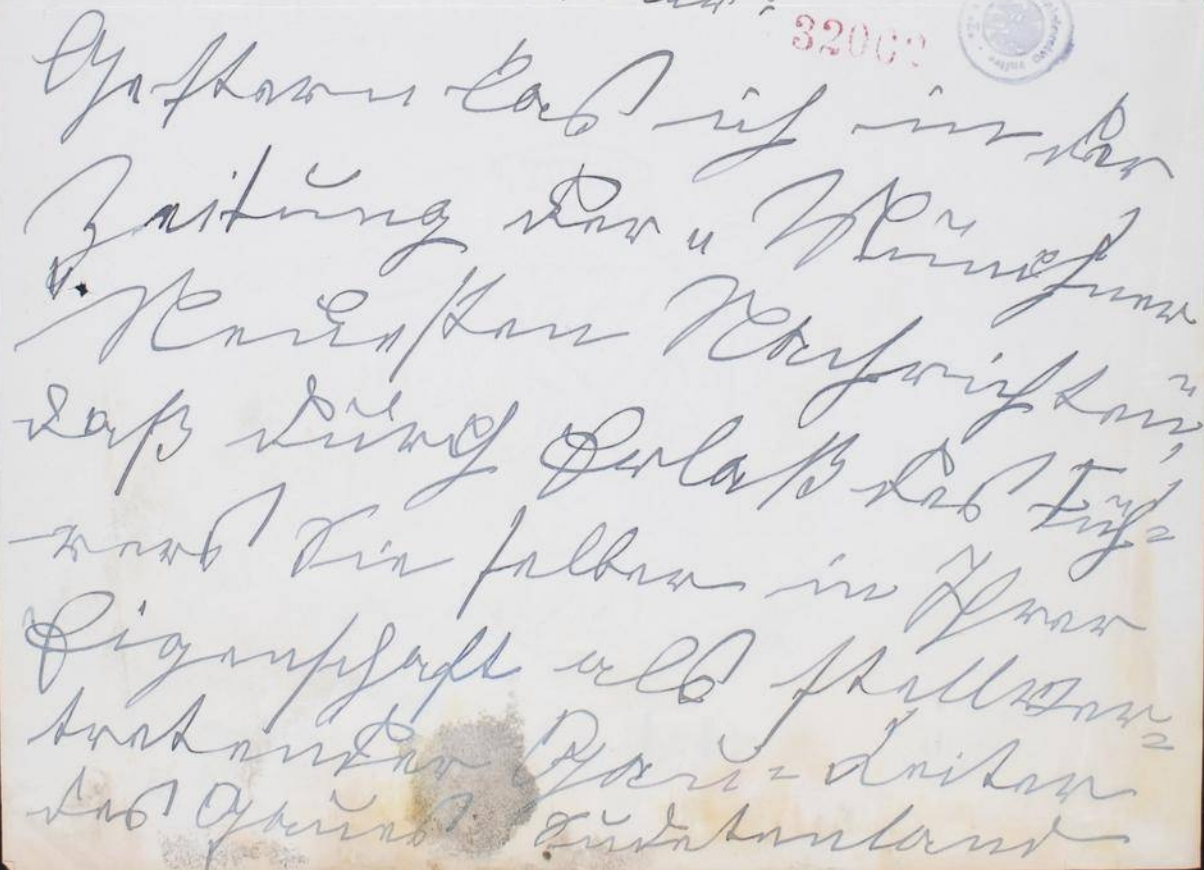 3200
Gestern las ich in der
Zeitung der „Münchner
Neuesten Nachrichten",
daß durch Erlaß des Füh=
rers Sie selber in Ihrer
Eigenschaft als stellver=
tretender Gau=Leiter
des Gaues Sudetenland